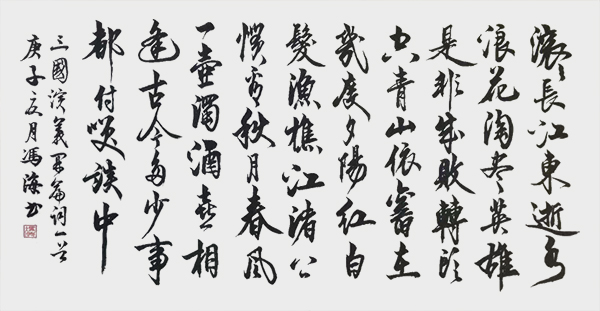 滚々長江東逝水
浪花淘尽英雄
是非成敗轉頭
空青山依舊在
幾度夕陽紅白
髮漁樵江渚上
慣看秋月春風
一壺濁酒喜相
逢古今多少事
都付笑談中
三國演義開篇詞一首
庚子夏月馮海书